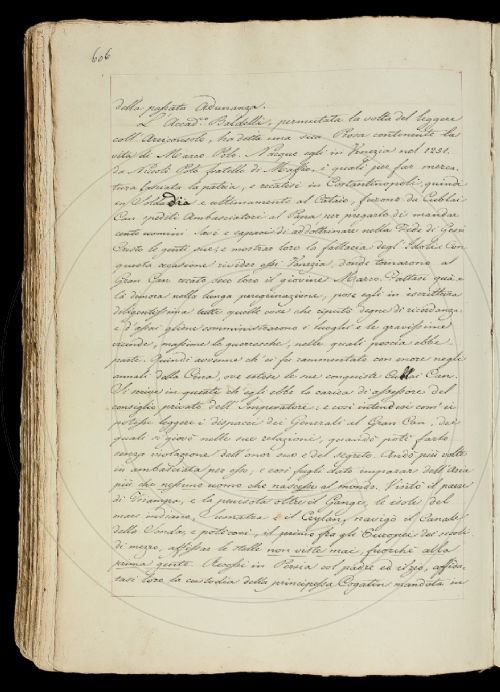 606
della passata Adunanza.
L'Accad.co Baldelli, permutata la volta del leggere
coll'Arciconsolo, ha detta una sua Prosa contenente la
vita di Marco Polo. Nacque egli in Venezia nel 1251.
da Nicolò Polo fratello di Maffeo, i quali per far merca-
tura lasciata la patria, e recatisi in Costantinopoli, quindi
in Soldadia e ultimamente al Cataio, furono da Cublai
Can spediti Ambasciatori al Papa per pregarlo di mandar
cento uomini Savi e capaci di addottrinare nella Fede di Gesù
Cristo le genti sue, e mostrar loro la fallacia degli Idoli. Con
questa occasione rivider essi Venezia, donde tornarono al
Gran Can recato seco loro il giovine Marco. Fattasi quà e
là dimora nella lunga peregrinazione, pose egli in iscrittura
diligentissima tutte quelle cose che riputò degne di ricordanza
e d'esse gliene somministrarono i luoghi e le gravissime
vicende, massime le guerresche, nelle quali poscia ebbe
parte. Quindi avvenne ch'ei fu rammentato con onore negli
annali della Cina, ove estese le sue conquiste Cublai Can.
Si scrive in questi ch'egli ebbe la carica di assessore del
consiglio privato dell'Imperatore; e così intendesi com'ei
potesse leggere i dispacci dei Generali al Gran Can, dei
quali si giovò nelle sue relazioni, quando potè farlo
senza violazione dell'onor suo e del segreto. Andò più volte
in ambasciata per esso, e così fugli dato imparare dell'Asia
più che nessuno uomo che nascesse al mondo. Visitò il paese
di Ciampa, e la penisola oltre il Gange, le isole del
mare indiano, Sumatra e il Ceylan, navigò il Canale
della Sonda, e potè così, il primo fra gli Europei dei secoli
di mezzo, affissar le stelle non viste mai, fuorchè alla
prima gente. Recossi in Persia col padre ed il zio, affida-
tasi loro la custodia della principessa Cogatin mandata in